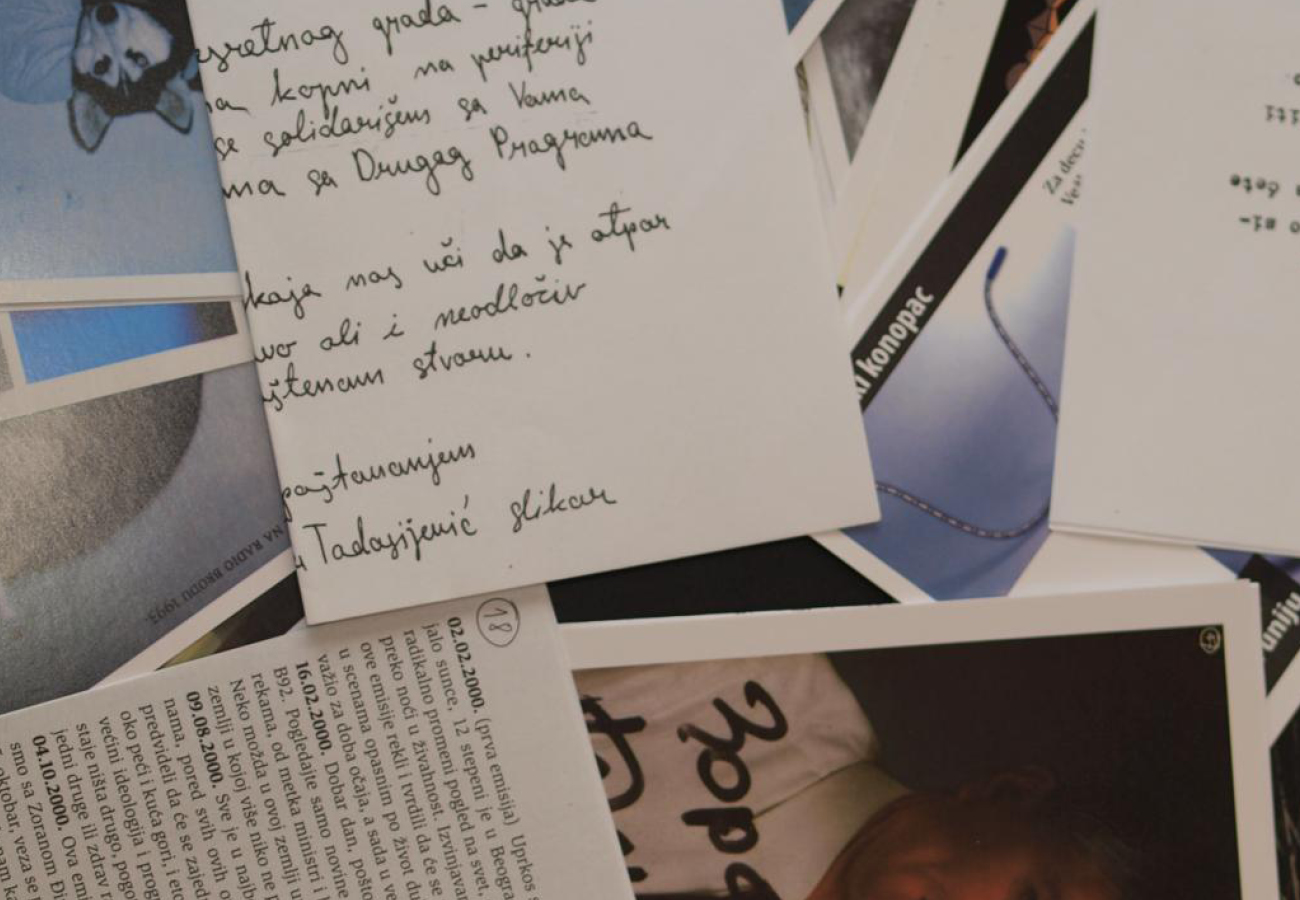 grada -
kopni na periferiji
se solidarišem sa Vama
ma sa Drugog Programa
koja nas uči da je otpor
ali i neodloživ
stvaru.
poštovanjem
Tadosijević slikar
Za decu
ki konopac
iti
ćete
ni-
NA RADIO BRODU 1993.
18
02.02.2000. (prva emisija) Uprkos
jalo sunce, 12 stepeni je u Beogra
radikalno promeni pogled na svet,
preko noći u živahnost. Izvinjava
ove emisije rekli i tvrdili da će se
u scenama opasnim po život du
važio za doba očaja, a sada u ve
16.02.2000. Dobar dan, pošto
B92. Pogledajte samo novine
rekama, od metka ministri i
Neko možda u ovoj zemlji u
zemlji u kojoj više niko ne
09.08.2000. Sve je u najb
nama, pored svih ovih o
predvideli da će se zajed
oko peći i kuća gori, i eto
većini ideologija i prog
staje ništa drugo, pogo
jedni druge ili zdrav r
04.10.2000. Ova emi
smo sa Zoranom Đi
oktobar, veza se
nam ka
uniju